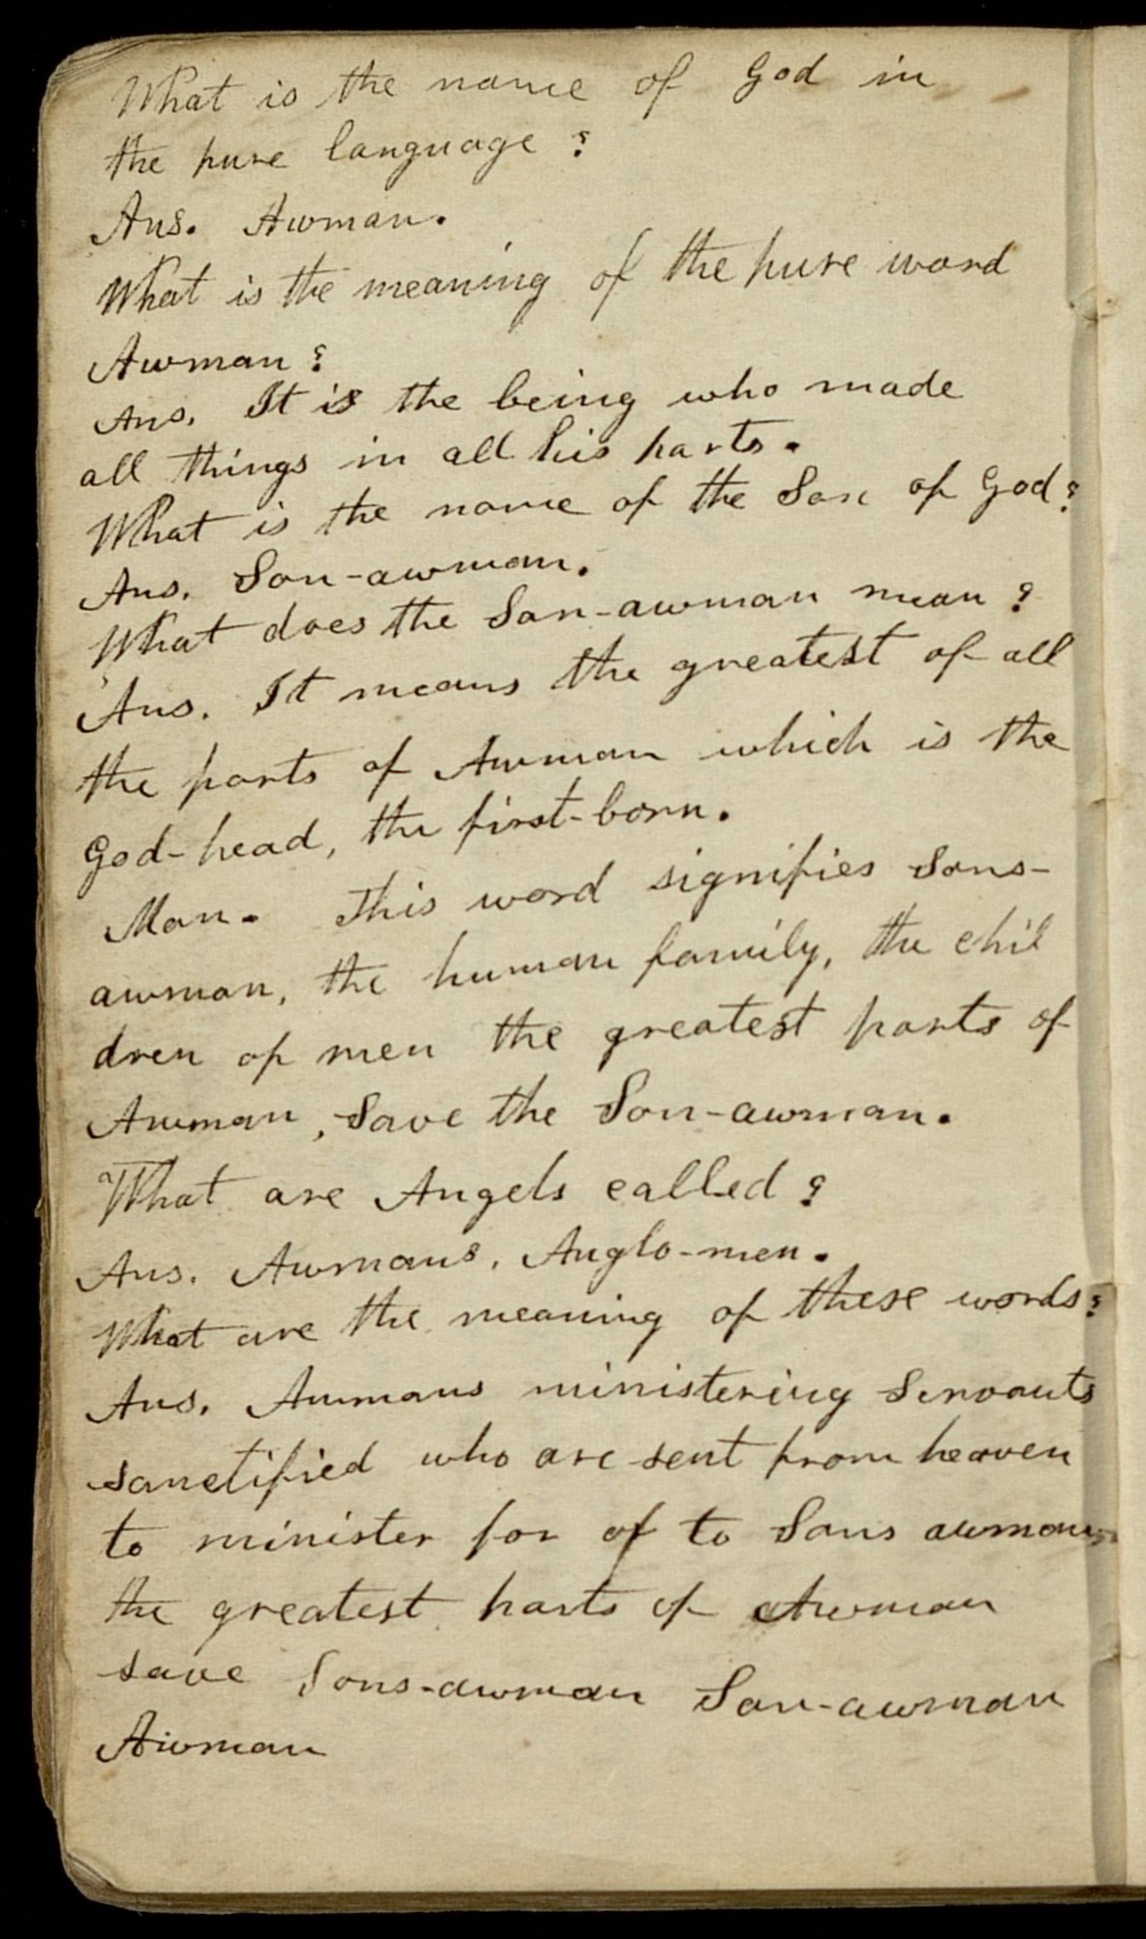 What is the name of God in
the pure language?
Ans. Awman.
What is the meaning of the pure word
Awman?
Ans. It is the being who made
all things in all his parts.
What is the name of the Son of God?
Ans. Son-awman.
What does the Son-awman mean?
Ans. It means the greatest of all
the parts of Awman which is the
God-head, the first-born.
Man. This word signifies Sons-
awman, the human family, the chil
dren of men the greatest parts of
Awman, Save the Son-awman.
What are Angels called?
Ans. Awmans, Anglo-men.
What are the meaning of these words?
Ans. Awmans ministering Servants
Sanctified who are sent from heaven
to minister for of to Sons awman
the greatest parts of Awman
save Sons-awman Son-awman
Awman